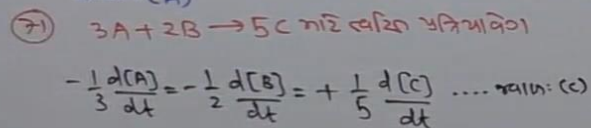 (71) 3A + 2B → 5C માટે ત્વરિત પ્રક્રિયાવેગ
- 1/3 d[A]/dt = - 1/2 d[B]/dt = + 1/5 d[C]/dt .... જવાબ: (C)